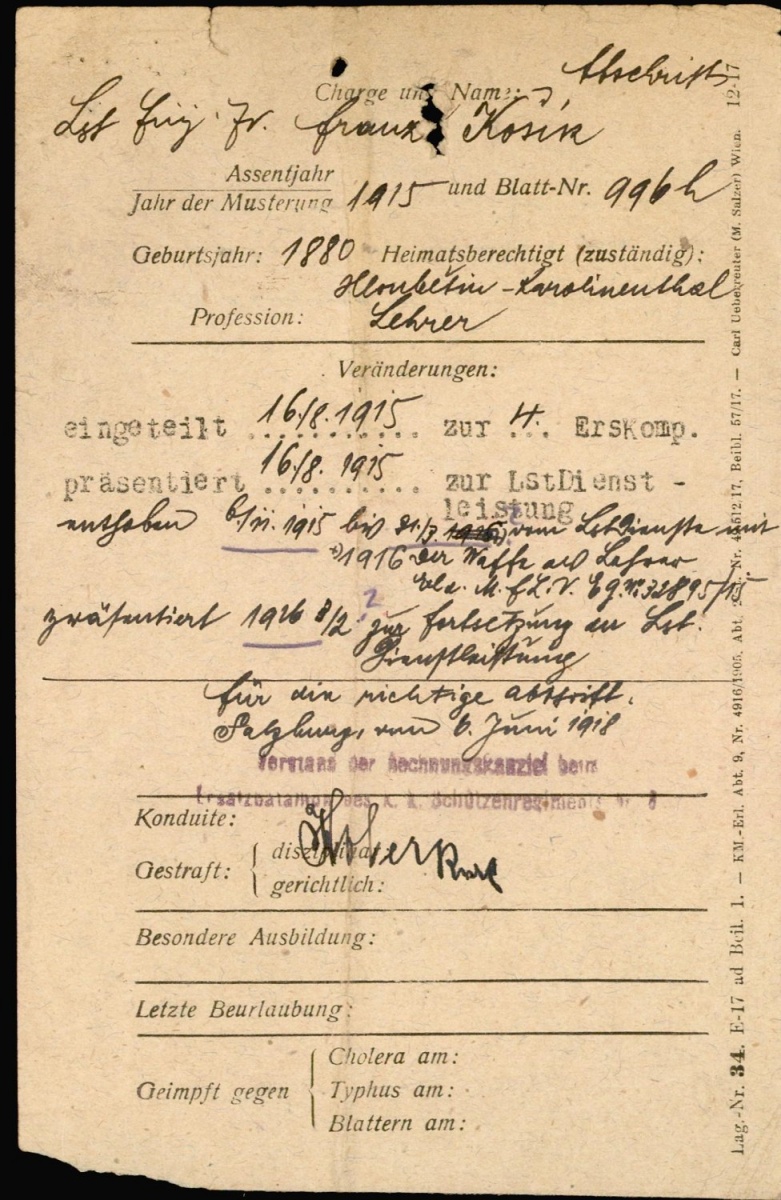 Abschrift
Charge und Name:
Lst Franz Kosik
Assentjahr
Jahr der Musterung 1915 und Blatt-Nr. 996 h
Geburtsjahr: 1880 Heimatsberechtigt (zuständig):
Hloubětin - Karolinenthal
Profession: Lehrer
Veränderungen:
eingeteilt 16/8. 1915 zur 4. Erskomp.
präsentiert 16/8. 1915 zur LstDienst -
leistung
enthoben 6/11. 1915 bis 31/7. 1926 vom Lstdienste mit
1916 der Waffe als Lehrer
Erl. M. f. L. V. Eg. Nr. 32895/15
präsentiert 1916 8/2 ? zur Fortsetzung der Lst.
Dienstleistung
Für die richtige Abschrift.
Salzburg, vom 6. Juni 1918
Vorstand der Rechnungskanzlei beim
Ersatzbataillon des k. k. Schützenregiments Nr. 8
Konduite:
Gestraft: disziplinar:
gerichtlich:
Besondere Ausbildung:
Letzte Beurlaubung:
Geimpft gegen Cholera am:
Typhus am:
Blattern am:
Lag.-Nr. 34. E-17 ad Beil. 1. — KM.-Erl. Abt. 9, Nr. 4916/1905, Abt. Nr. 12.17, Beibl. 57/17. — Carl Ueberreuter (M. Salzer) Wien. 12-17